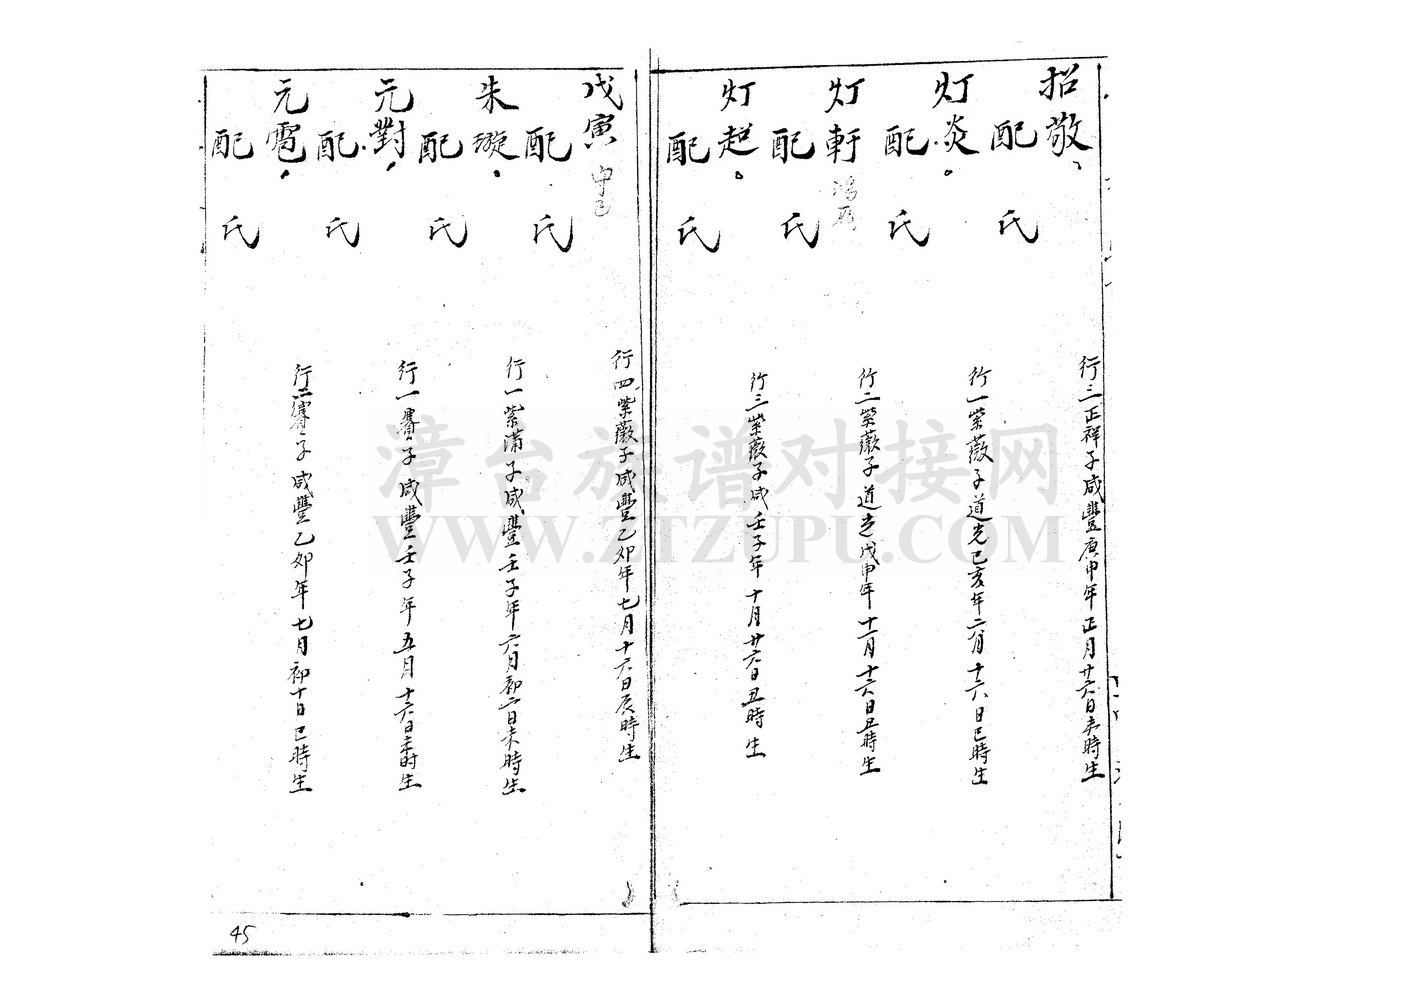 招敬
行三正祥子咸豐庚申年正月廿六日未時生
配 氏
灯炎
行一紫薇子道光己亥年二月十六日巳時生
配 氏
灯軒
行二紫薇子道光戊申年十一月十六日丑時生
配 氏
灯超
行三紫薇子咸壬子年十月廿六日丑時生
配 氏
戊寅
行四紫薇子咸豐乙卯年七月十六日辰時生
配 氏
朱璇
行一紫蒲子咸豐壬子年六月初二日未時生
配 氏
元對
行一賽子咸豐壬子年五月十六日未時生
配 氏
元雹
行二賽子咸豐乙卯年七月初十日巳時生
配 氏
45
漳台族谱对接网
WWW.ZTZUPU.COM